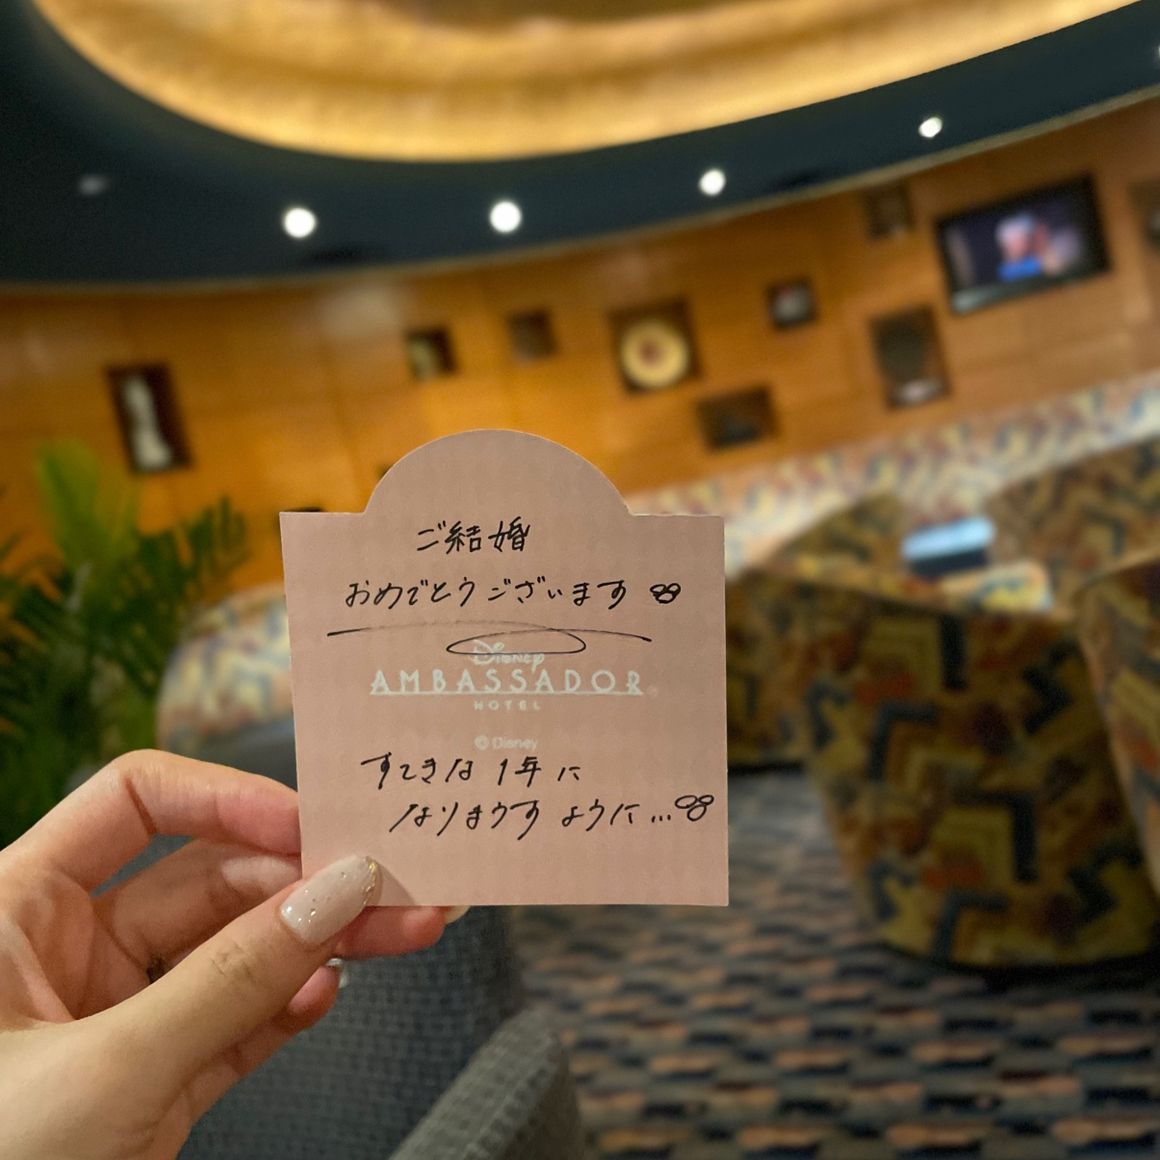 ご結婚
おめでとうございます
Disney
AMBASSADOR®
HOTEL
© Disney
すてきな1年に
なりますように...